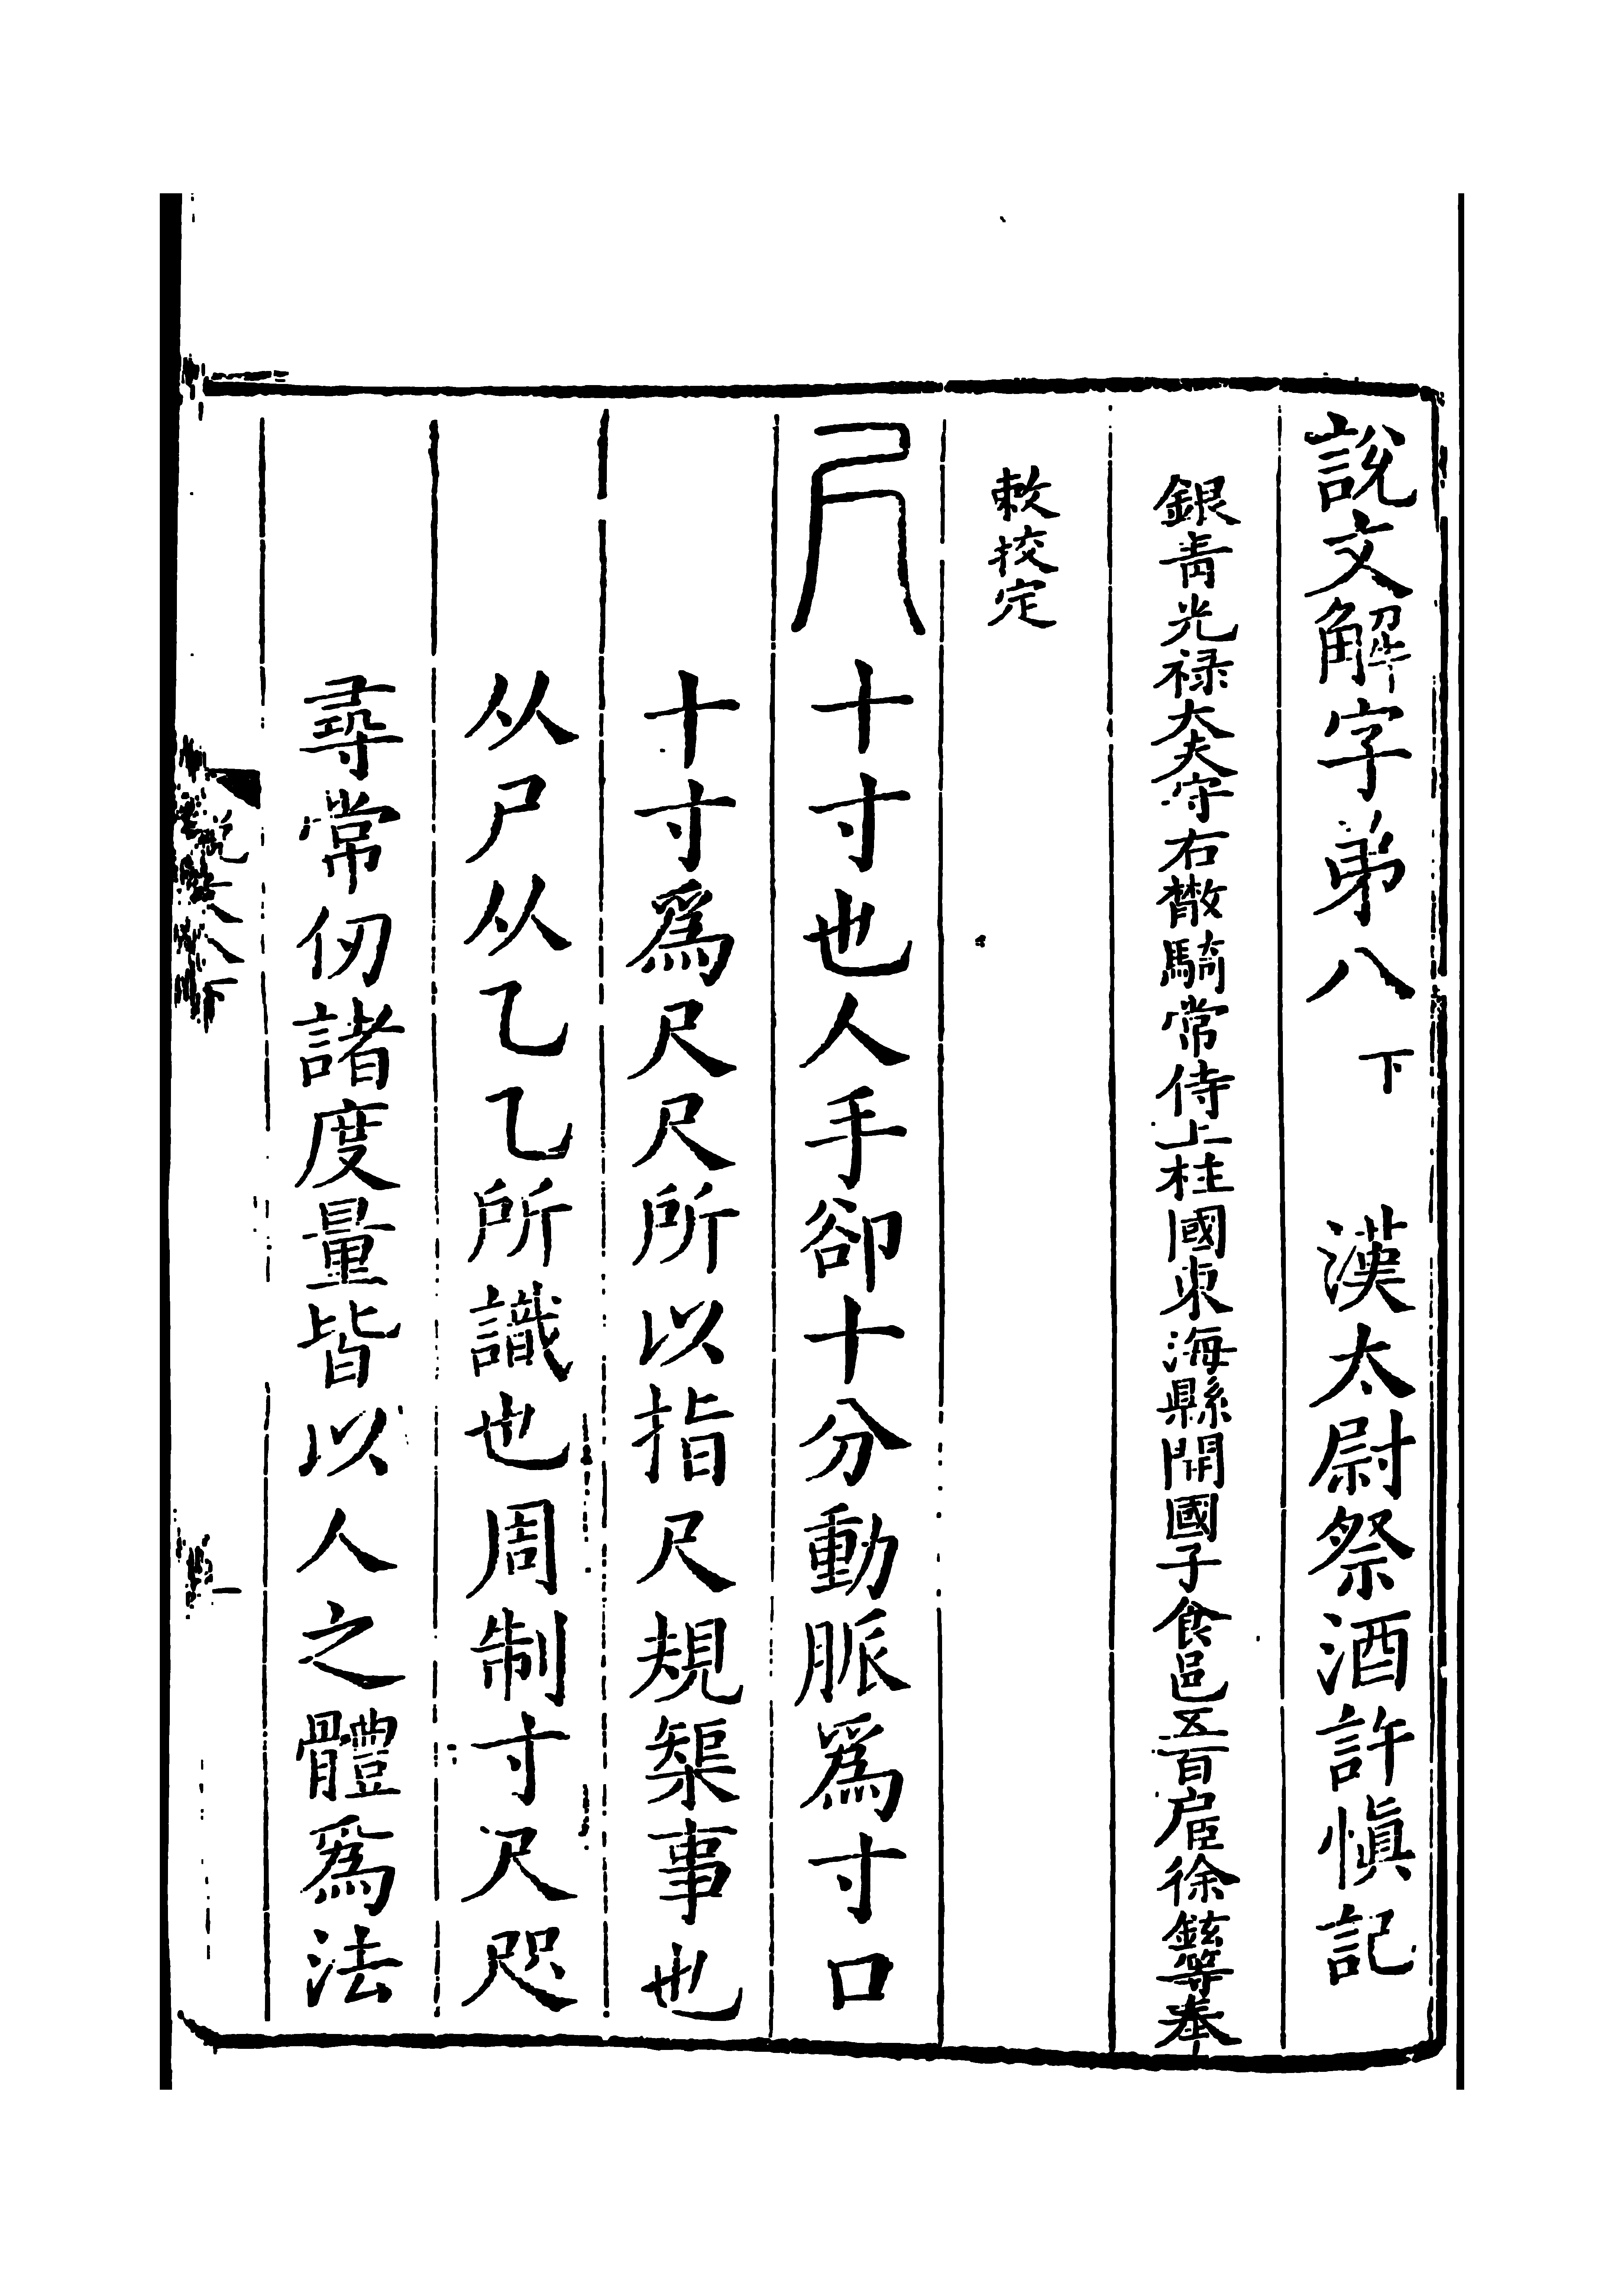 說文解字弟八 下 漢太尉祭酒許慎記
銀青光禄大夫守右散騎常侍上柱國東海縣開國子食邑五百户臣徐鉉等奉
敕挍定
尺 十寸也人手卻十分動脈爲寸口
十寸爲尺尺所以指尺規榘事也
从尸从乙乙所識也周制寸尺咫
尋常仞諸度量皆以人之體爲法